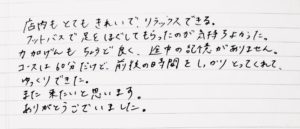 店内もとてもきれいで、リラックスできる。
フットバスで足をほぐしてもらったのが気持ちよかった。
力かげんもちょうど良く、途中の記憶がありません。
コースは60分だけど、前後の時間をしっかりとってくれて、
ゆっくりできた。
また来たいと思います。
ありがとうございました。